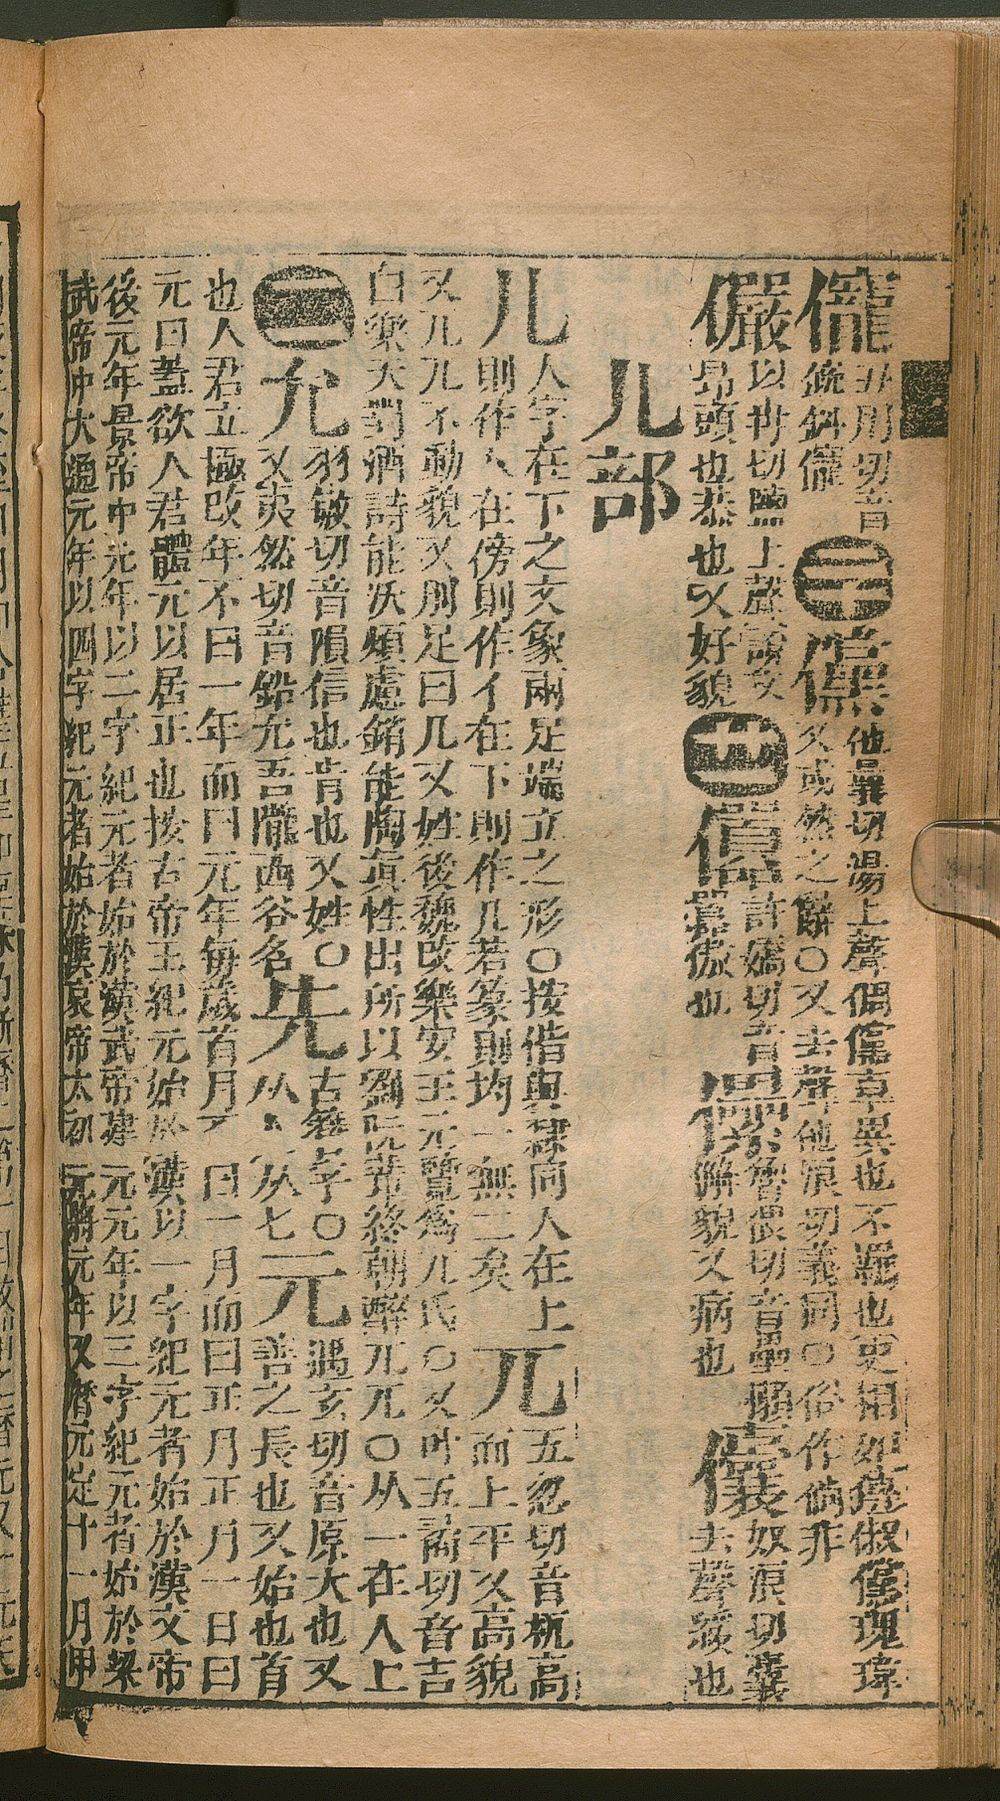 儱丑用切音
𠊧斜儱
儻他曩切湯上聲倜儻卓異也不羈也史相如傳俶儻瑰瑋
又或然之辭〇又去聲他浪切義同〇俗作倘非
儼以冉切鹽上聲說文
昂頭也恭也又好貌
許嬌切音
囂傲也
儽魯偎切音壘
懶貌又病也
儾奴浪切囊
去聲緩也
儿部
儿人字在下之文象兩足端立之形〇按偕與隸同人在上
則作人在傍則作亻在下則作儿若篆則均一無二矣
兀五忽切音杌高
而上平又高貌
又兀兀不動貌又刖足曰兀又姓後魏改樂安王元覽爲兀氏〇又叶五切音吉
白樂天對酒詩能沃煩慮銷能陶真性出所以劉阮輩終朝醉兀兀〇从一在人上
二
允羽敏切音隕信也肯也又姓〇
又夷然切音鉛允吾隴西谷名
先古簪字〇
从人从匕
元遇玄切音原大也又
善之長也又始也首
也人君立極改年不曰一年而曰元年每歲首月不曰一月而曰正月正月一日曰
元日蓋欲人君體元以居正也按古帝王紀元始於漢以一字紀元者始於漢文帝
後元年景帝中元年以二字紀元者始於漢武帝建元元年以三字紀元者始於梁
武帝中大通元年以四字紀元者始於漢哀帝太初元將元年又曆元定十一月甲